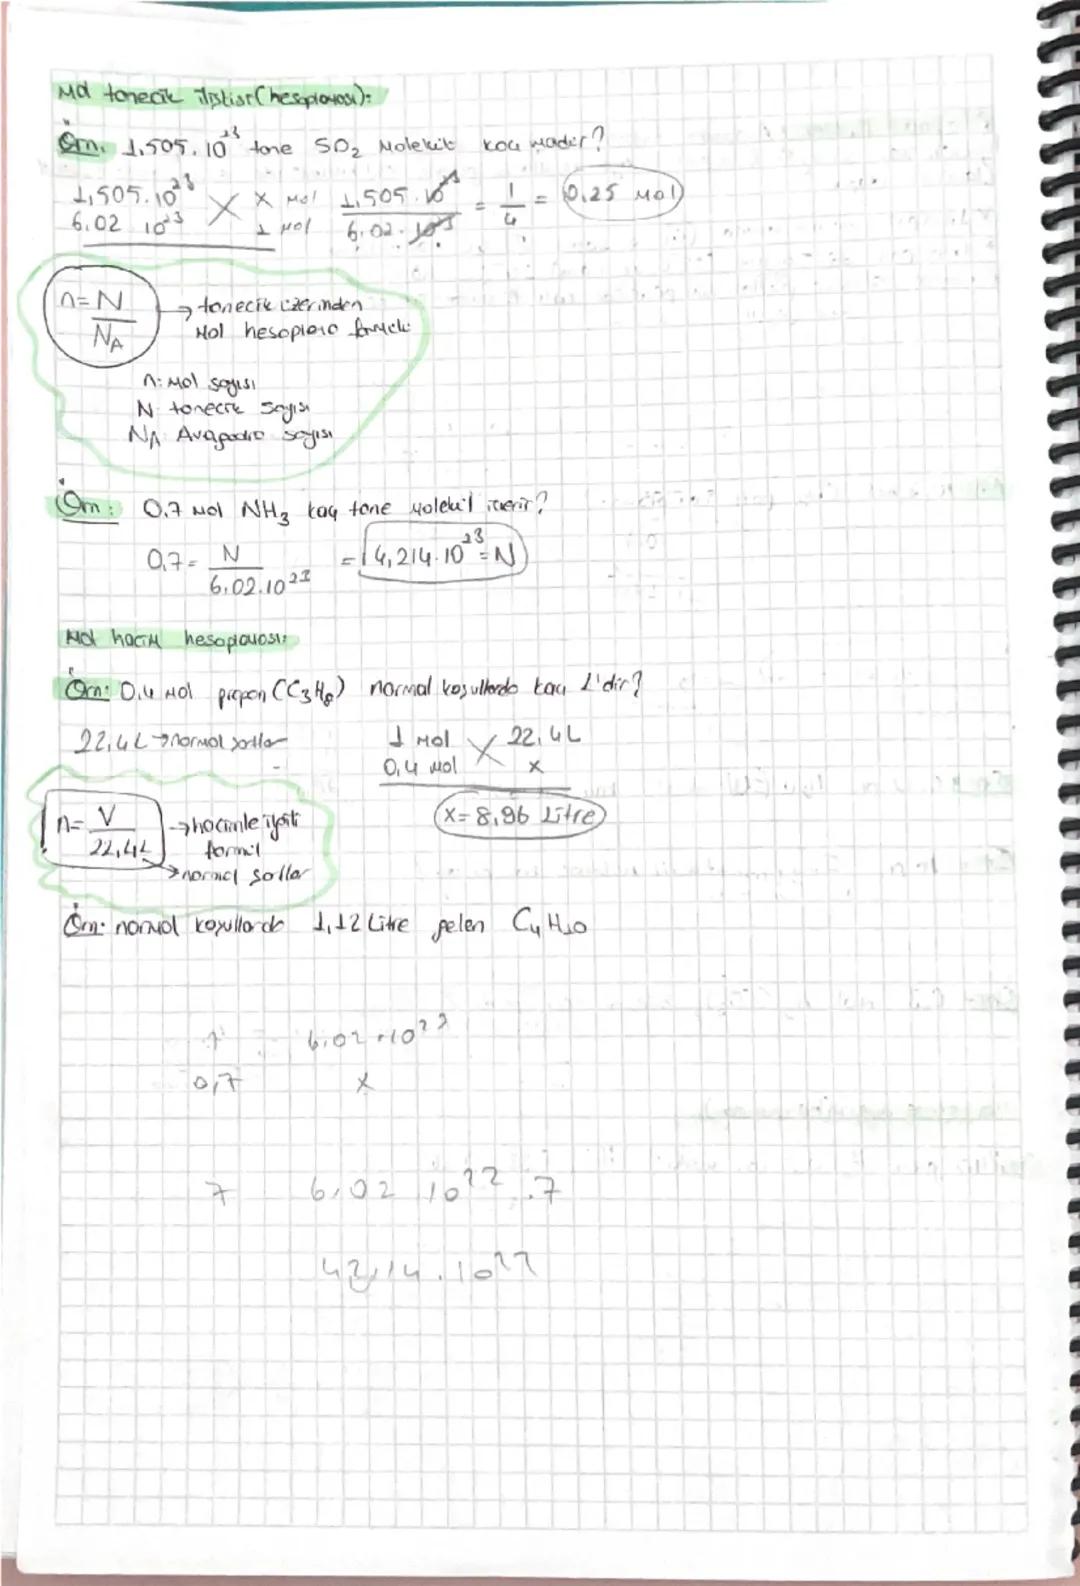 Mol tanecik ilişkisi (hesaplaması):
Örn. 1,505.10²³ tane SO₂ molekülü kaç moldür?
1,505.10²³ x mol 1,505.10²³ / 6,02.10²³ = 1/4 = 0,25 mol
6,02 10²³ 1 mol
n = N / NA → tanecik üzerinden
mol hesaplama formülü
n: mol sayısı
N tanecik sayısı
NA: Avagadro sayısı
Örn: 0,7 mol NH₃ kaç tane molekül içerir?
0,7 = N / 6,02.10²³ = 4,214.10²³ = N
Mol hacim hesaplaması:
Örn: 0,4 mol propan (C₃H₈) normal koşullarda kaç L'dir?
22,4 L → normal şartlar
1 mol 22,4L
0,4 mol x
x = 8,96 Litre
n = V / 22,4L → hacimle ilgili
formül
→ normal şartlar
Örn: normal koşullarda 1,12 Litre gelen C₄H₁₀
1 6,02.10²³
0,7 x
7 6,02 10²² .7
42,14.10²²